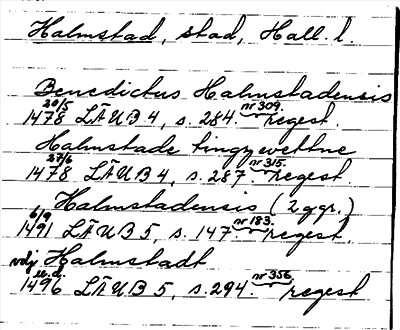 Halmstad, stad, Hall. l.
Benedictus Halmstadensis
1478 20/5 LÄUB 4, s. 284. nr 309. regest.
Halmstade tingzvettne
1478 27/6 LÄUB 4, s. 287. nr 315. regest
Halmstadensis (2 ggr.)
1491 6/9 LÄUB 5, s. 147. nr 183. regest.
Halmstadt
1496 u.d. LÄUB 5, s. 294. nr 356. regest